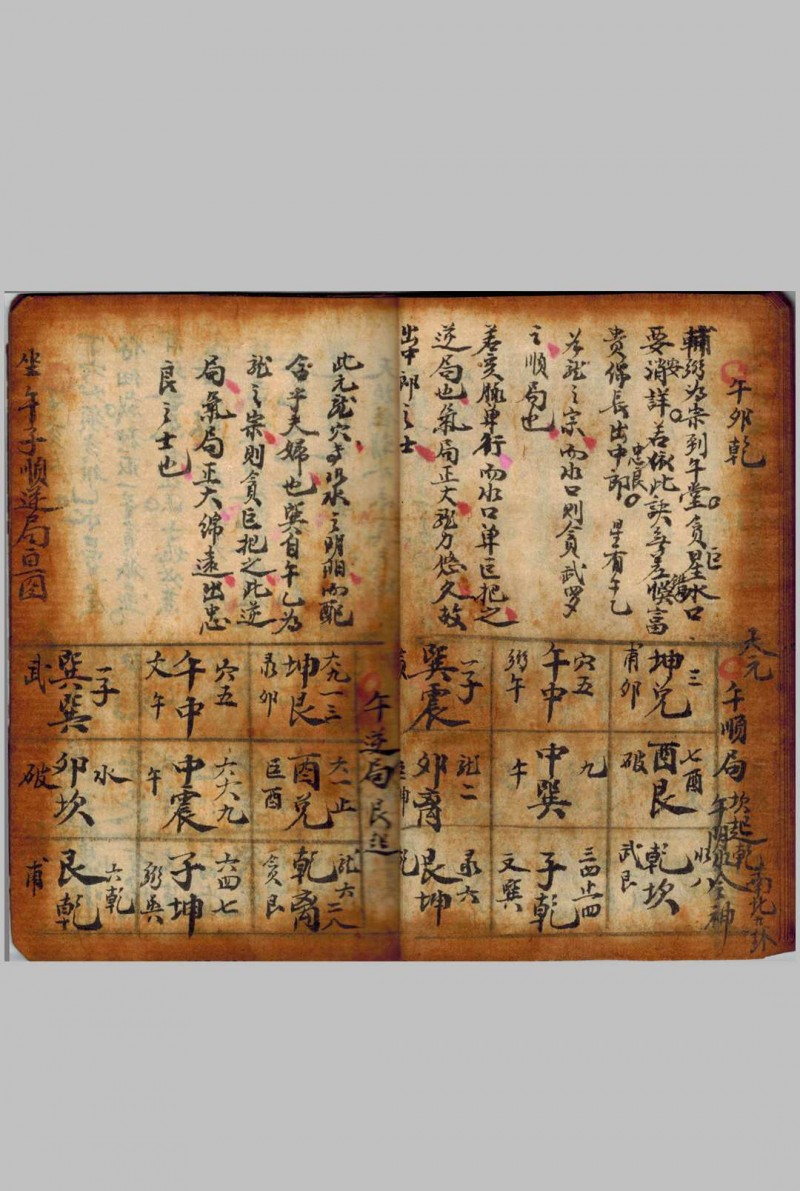 午卯乾
輔弼為宗到午堂貪星水口
巨
要消詳若依此訣无差悞富
安
貴保長出中郎
忠良
星有午乙
為龙之宗而水口則貪武罗
之順局也
若受脉单行而水口单巨把之
逆局也氣局正大龙力悠久故
出中郎之士
此元龙穴
水之明阳而配
合乎夫婦也巽自午乙為
龙之宗則貪巨把之此逆
局氣局正大綿遠出忠
良之士也
坐午子順逆局
图
天元
午順局
坎起乾
南北八卦
三
坤兑
甫卯
七酉
酉艮
破
八
乾坎
武艮
穴五
午中
弼午
九
中巽
午
子乾
文巽
一子
巽震
龙二
卯离
录六
艮坤
午逆局
坤艮
录卯
酉兑
巨酉
龙六
乾离
贪艮
穴五
午中
文午
六六九
中震
午
六四七
子坤
弼巽
一子
巽巽
武
水
卯坎
破
六乾
艮乾
甫